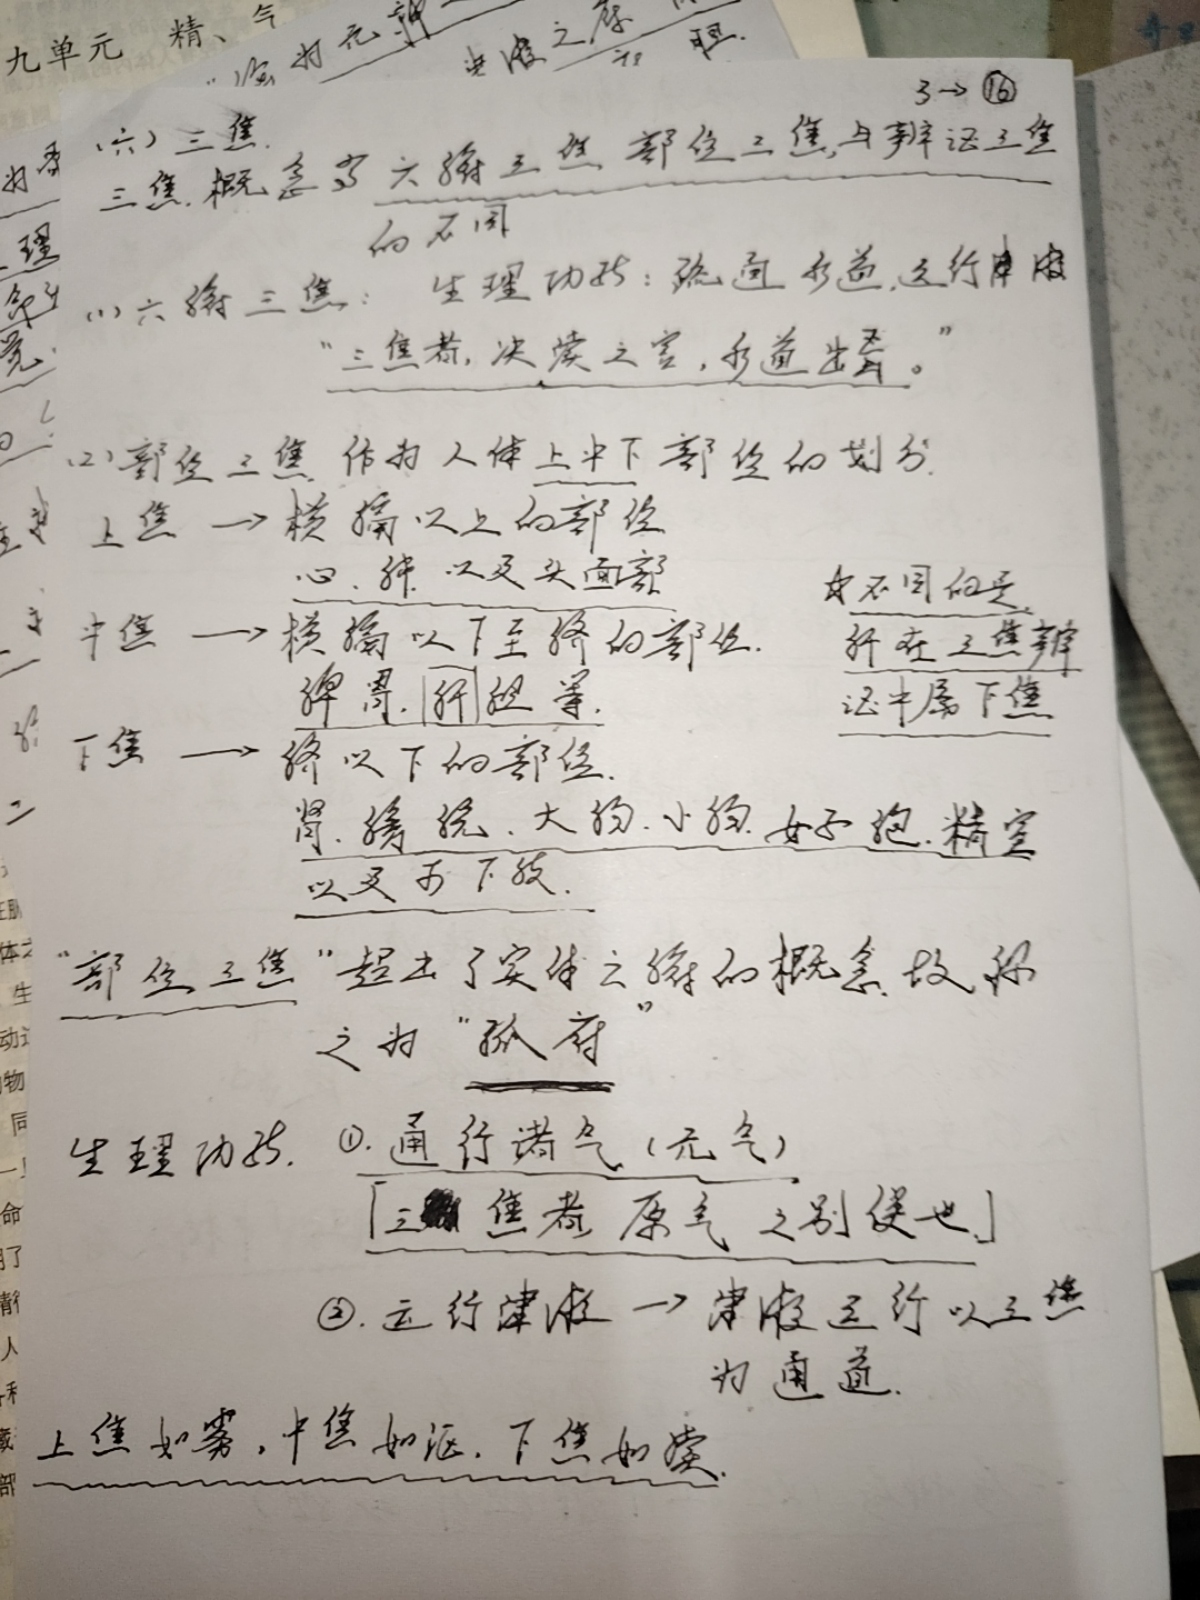 九单元 精、气
3→⑯
(六)三焦.
三焦.概念与六腑三焦 部位三焦,与辨证三焦
的不同
(1)六腑三焦: 生理功能:疏通水道,运行津液
"三焦者,决渎之官,水道出焉。"
(2)部位三焦 作为人体上中下部位的划分.
上焦 → 横膈以上的部位
心.肺 以及头面部
中焦 → 横膈以下至脐的部位.
脾胃.肝胆等.
下焦 → 脐以下的部位.
肾.膀胱.大肠.小肠.女子胞.精室
以及 下肢.
不同的是,
肝在三焦辨
证中属下焦
"部位三焦"超出了实体六腑的概念,故称
之为"孤府"
生理功能. ①.通行诸气(元气)
「三焦者 原气之别使也」
②.运行津液 → 津液运行以三焦
为通道.
上焦如雾,中焦如沤.下焦如渎.